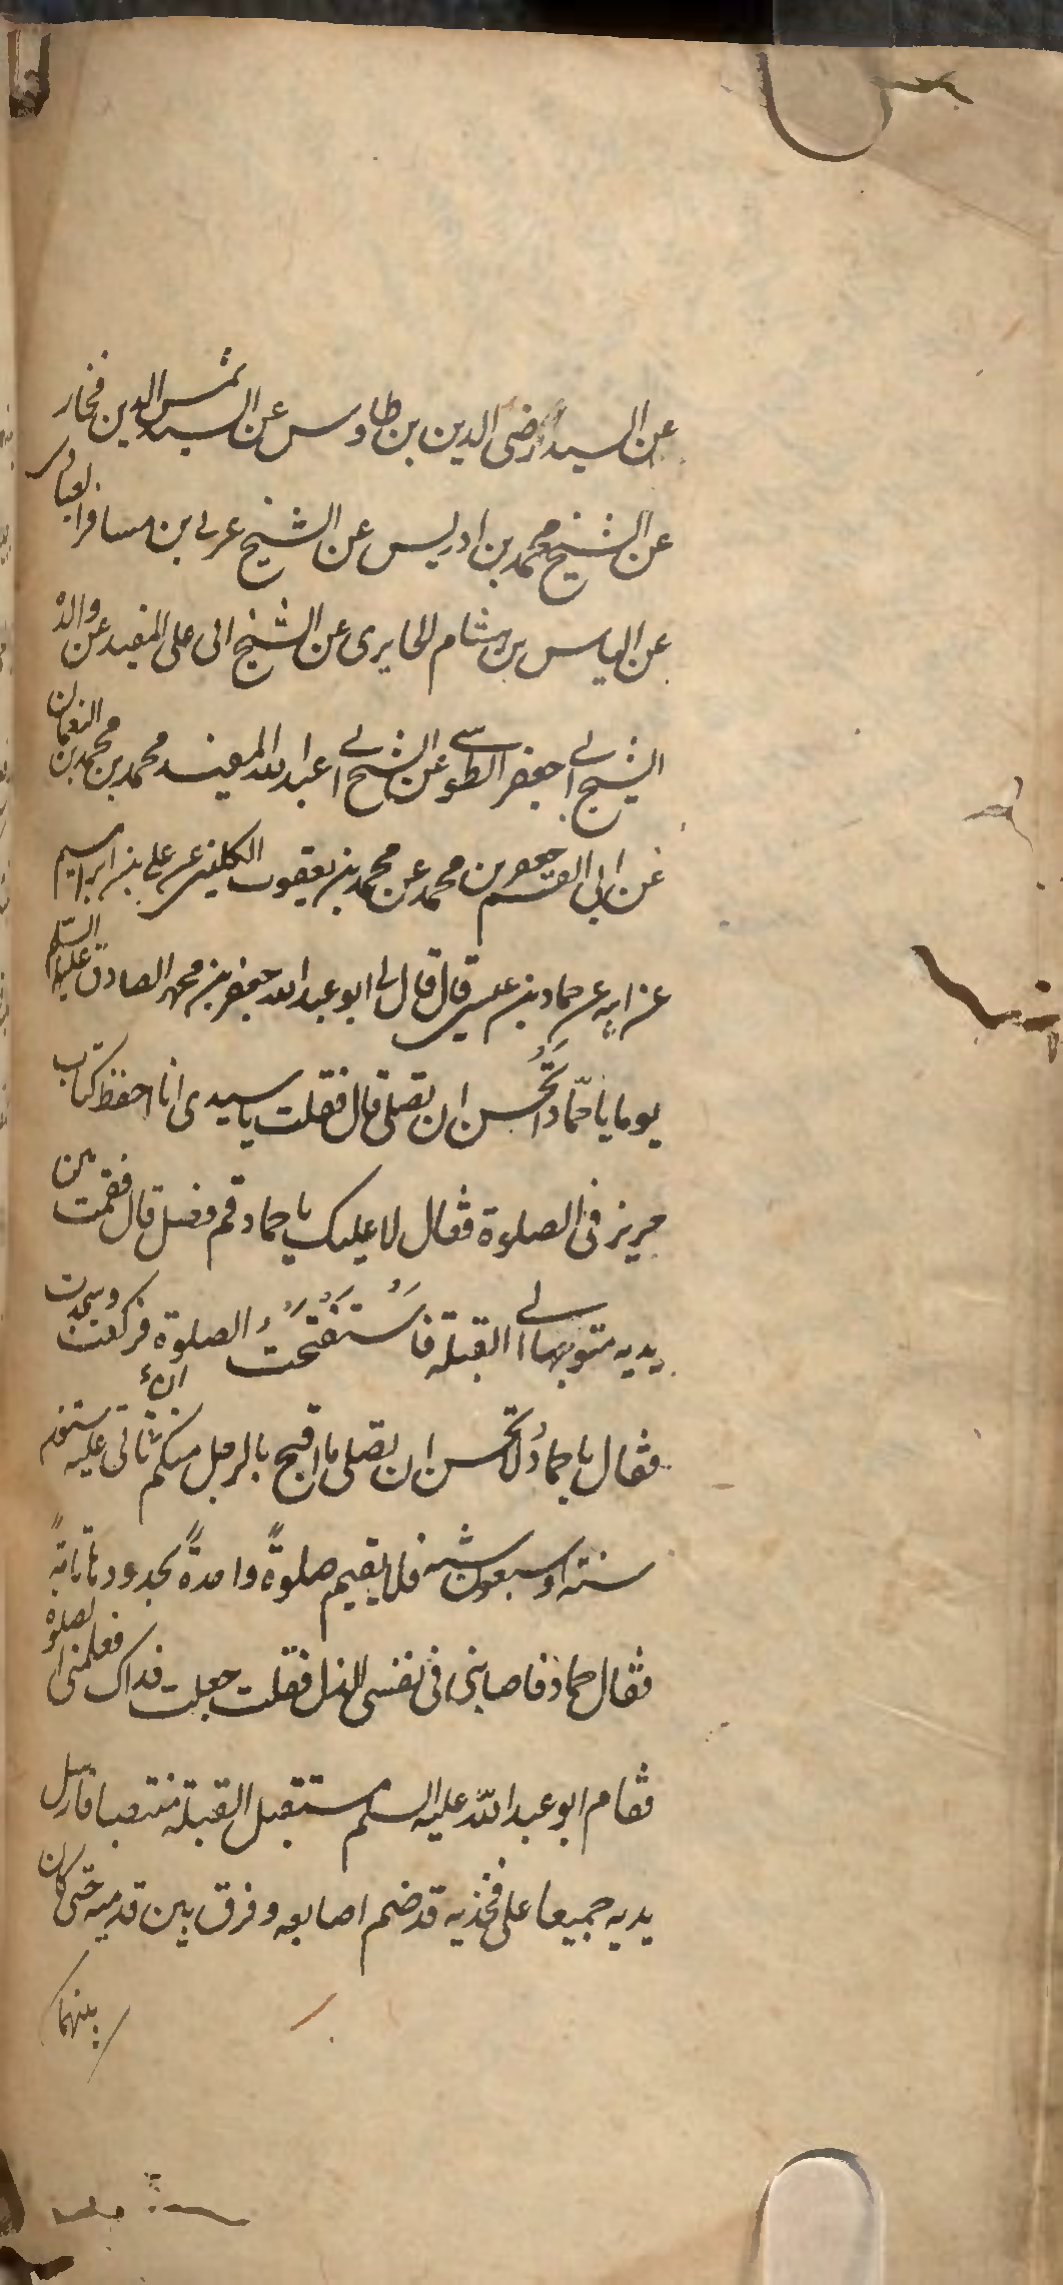 عن السيد رضى الدين بن طاوس عن السيد شمس الدين فخار
عن الشيخ محمد بن ادريس عن الشيخ عربى بن مسافر العبادى
عن الياس بن هشام الحايرى عن الشيخ ابى على المفيد عن والده
الشيخ ابى جعفر الطوسى عن الشيخ ابى عبدالله المفيد محمد بن محمد بن النعمان
عن ابى القسم جعفر بن محمد عن محمد بن يعقوب الكلينى عن على بن ابراهيم
عن ابيه عن حماد بن عيسى قال قال لى ابو عبدالله جعفر بن محمد الصادق عليه السلم
يوما يا حمّاد اَتُحسن ان تصلى قال فقلت يا سيدى انا احفظ كتاب
حريز فى الصلوة فقال لا عليك يا حماد قم فصل قال فقمت بين
يديه متوجها الى القبلة فاستفتحت الصلوة فركعت وسجدت
فقال يا حماد لا تحسن ان تصلى ما اقبح بالرجل منكم ان ياتى عليه ستون
سنة او سبعون سنة فلا يقيم صلوةً واحدةً بحدودها تامةً
فقال حماد فاصابنى فى نفسى الذل فقلت جعلت فداك فعلمنى الصلوة
فقام ابو عبد اللّه عليه السلم مستقبل القبلة منتصبا فارسل
يديه جميعا على فخذيه قد ضم اصابعه و فرق بين قدميه حتى كان
بينهما